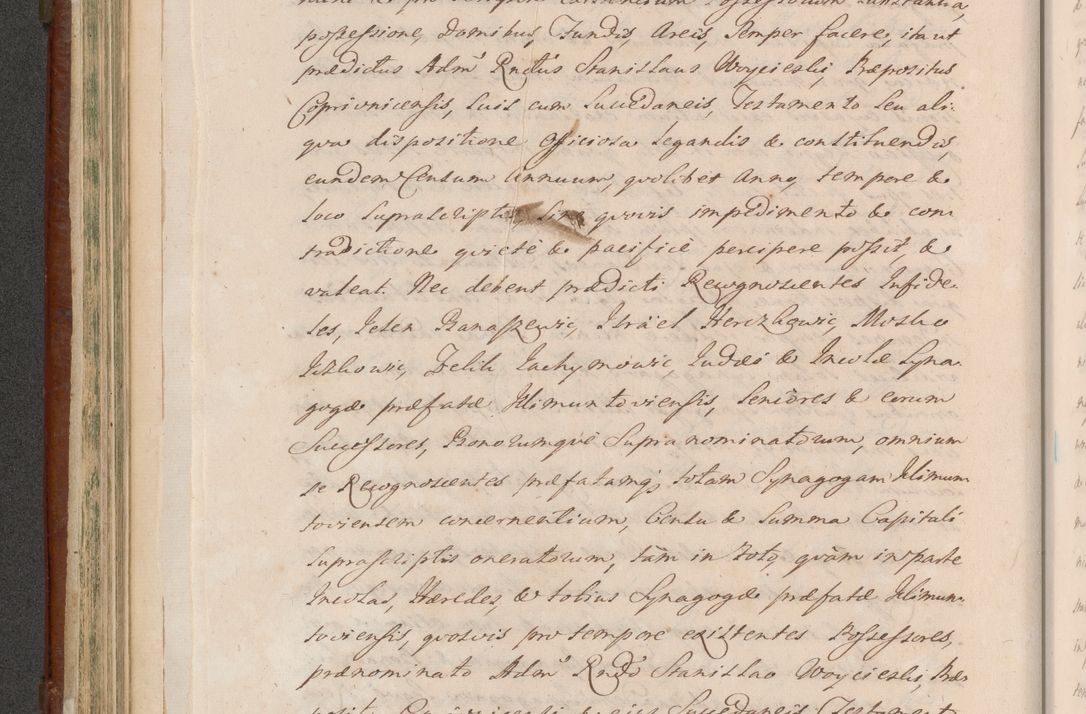 possessione, Domibus, Fundis, Areis, Semper facere, ita ut
prædictus Adm' Rndûs Stanislaus Woycieski, Præpositus
Coprivnicensis, Suis cum Succedaneis, Testamento Seu ali-
qva dispositione officiosa Legandis & constituendis,
eundem Censum Annuum, qvolibet Anno, tempore &
loco Suprascriptis, Sine qvovis impedimento & con-
tradictione qvietè & pacificè percipere possit, &
valeat. Nec debent prædicti Recognoscentes Infide-
les, Jelen Banaszewic, Israël Herczkowic, Mosko
Iczkowic, Felik Jachymowic Judæi & Incolæ Syna-
gogæ præfatæ Klimuntoviensis, Seniores & eorum
Successores, Bonorumqvè Supranominatorum, omnium
se Recognoscentes præfatamq; totam Synagogam Klimun
toviensem concernentium, Censu & Summa Capitali
Suprascriptis oneratorum, tàm in Toto qvàm in parte
Incolas, Hæredes, & totius Synagogæ præfatæ Klimun-
toviensis, qvosvis pro tempore existentes Possessores,
prænominato Adm' Rndô Stanislao Woycieski, Præ-